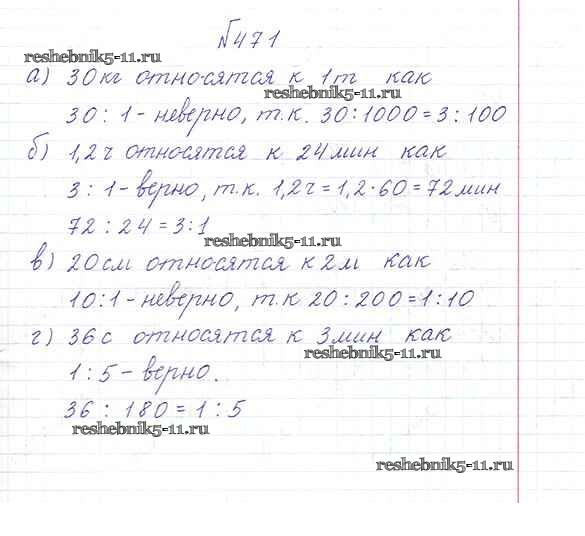 №471
reshebnik5-11.ru
а) 30кг относятся к 1т как
reshebnik5-11.ru
30 : 1 - неверно, т.к. 30 : 1000 = 3 : 100
б) 1,2ч относятся к 24 мин как
3 : 1 - верно, т.к. 1,2ч = 1,2 · 60 = 72 мин
72 : 24 = 3 : 1
reshebnik5-11.ru
в) 20см относятся к 2м как
10 : 1 - неверно, т.к 20 : 200 = 1 : 10
г) 36с относятся к 3мин как
reshebnik5-11.ru
1 : 5 - верно.
36 : 180 = 1 : 5
reshebnik5-11.ru
reshebnik5-11.ru